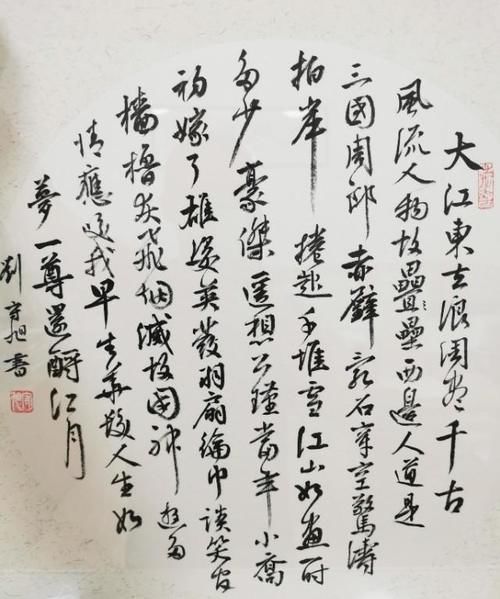 大江東去浪淘盡千古
風流人物故壘壘西邊人道是
三國周郎赤壁亂石穿空驚濤
拍岸捲起千堆雪江山如畫時
多少豪傑遙想公瑾當年小喬
初嫁了雄姿英發羽扇綸巾談笑間
檣櫓灰飛烟滅故國神遊多
情應笑我早生華髮人生如
夢一尊還酹江月
劉守旭書